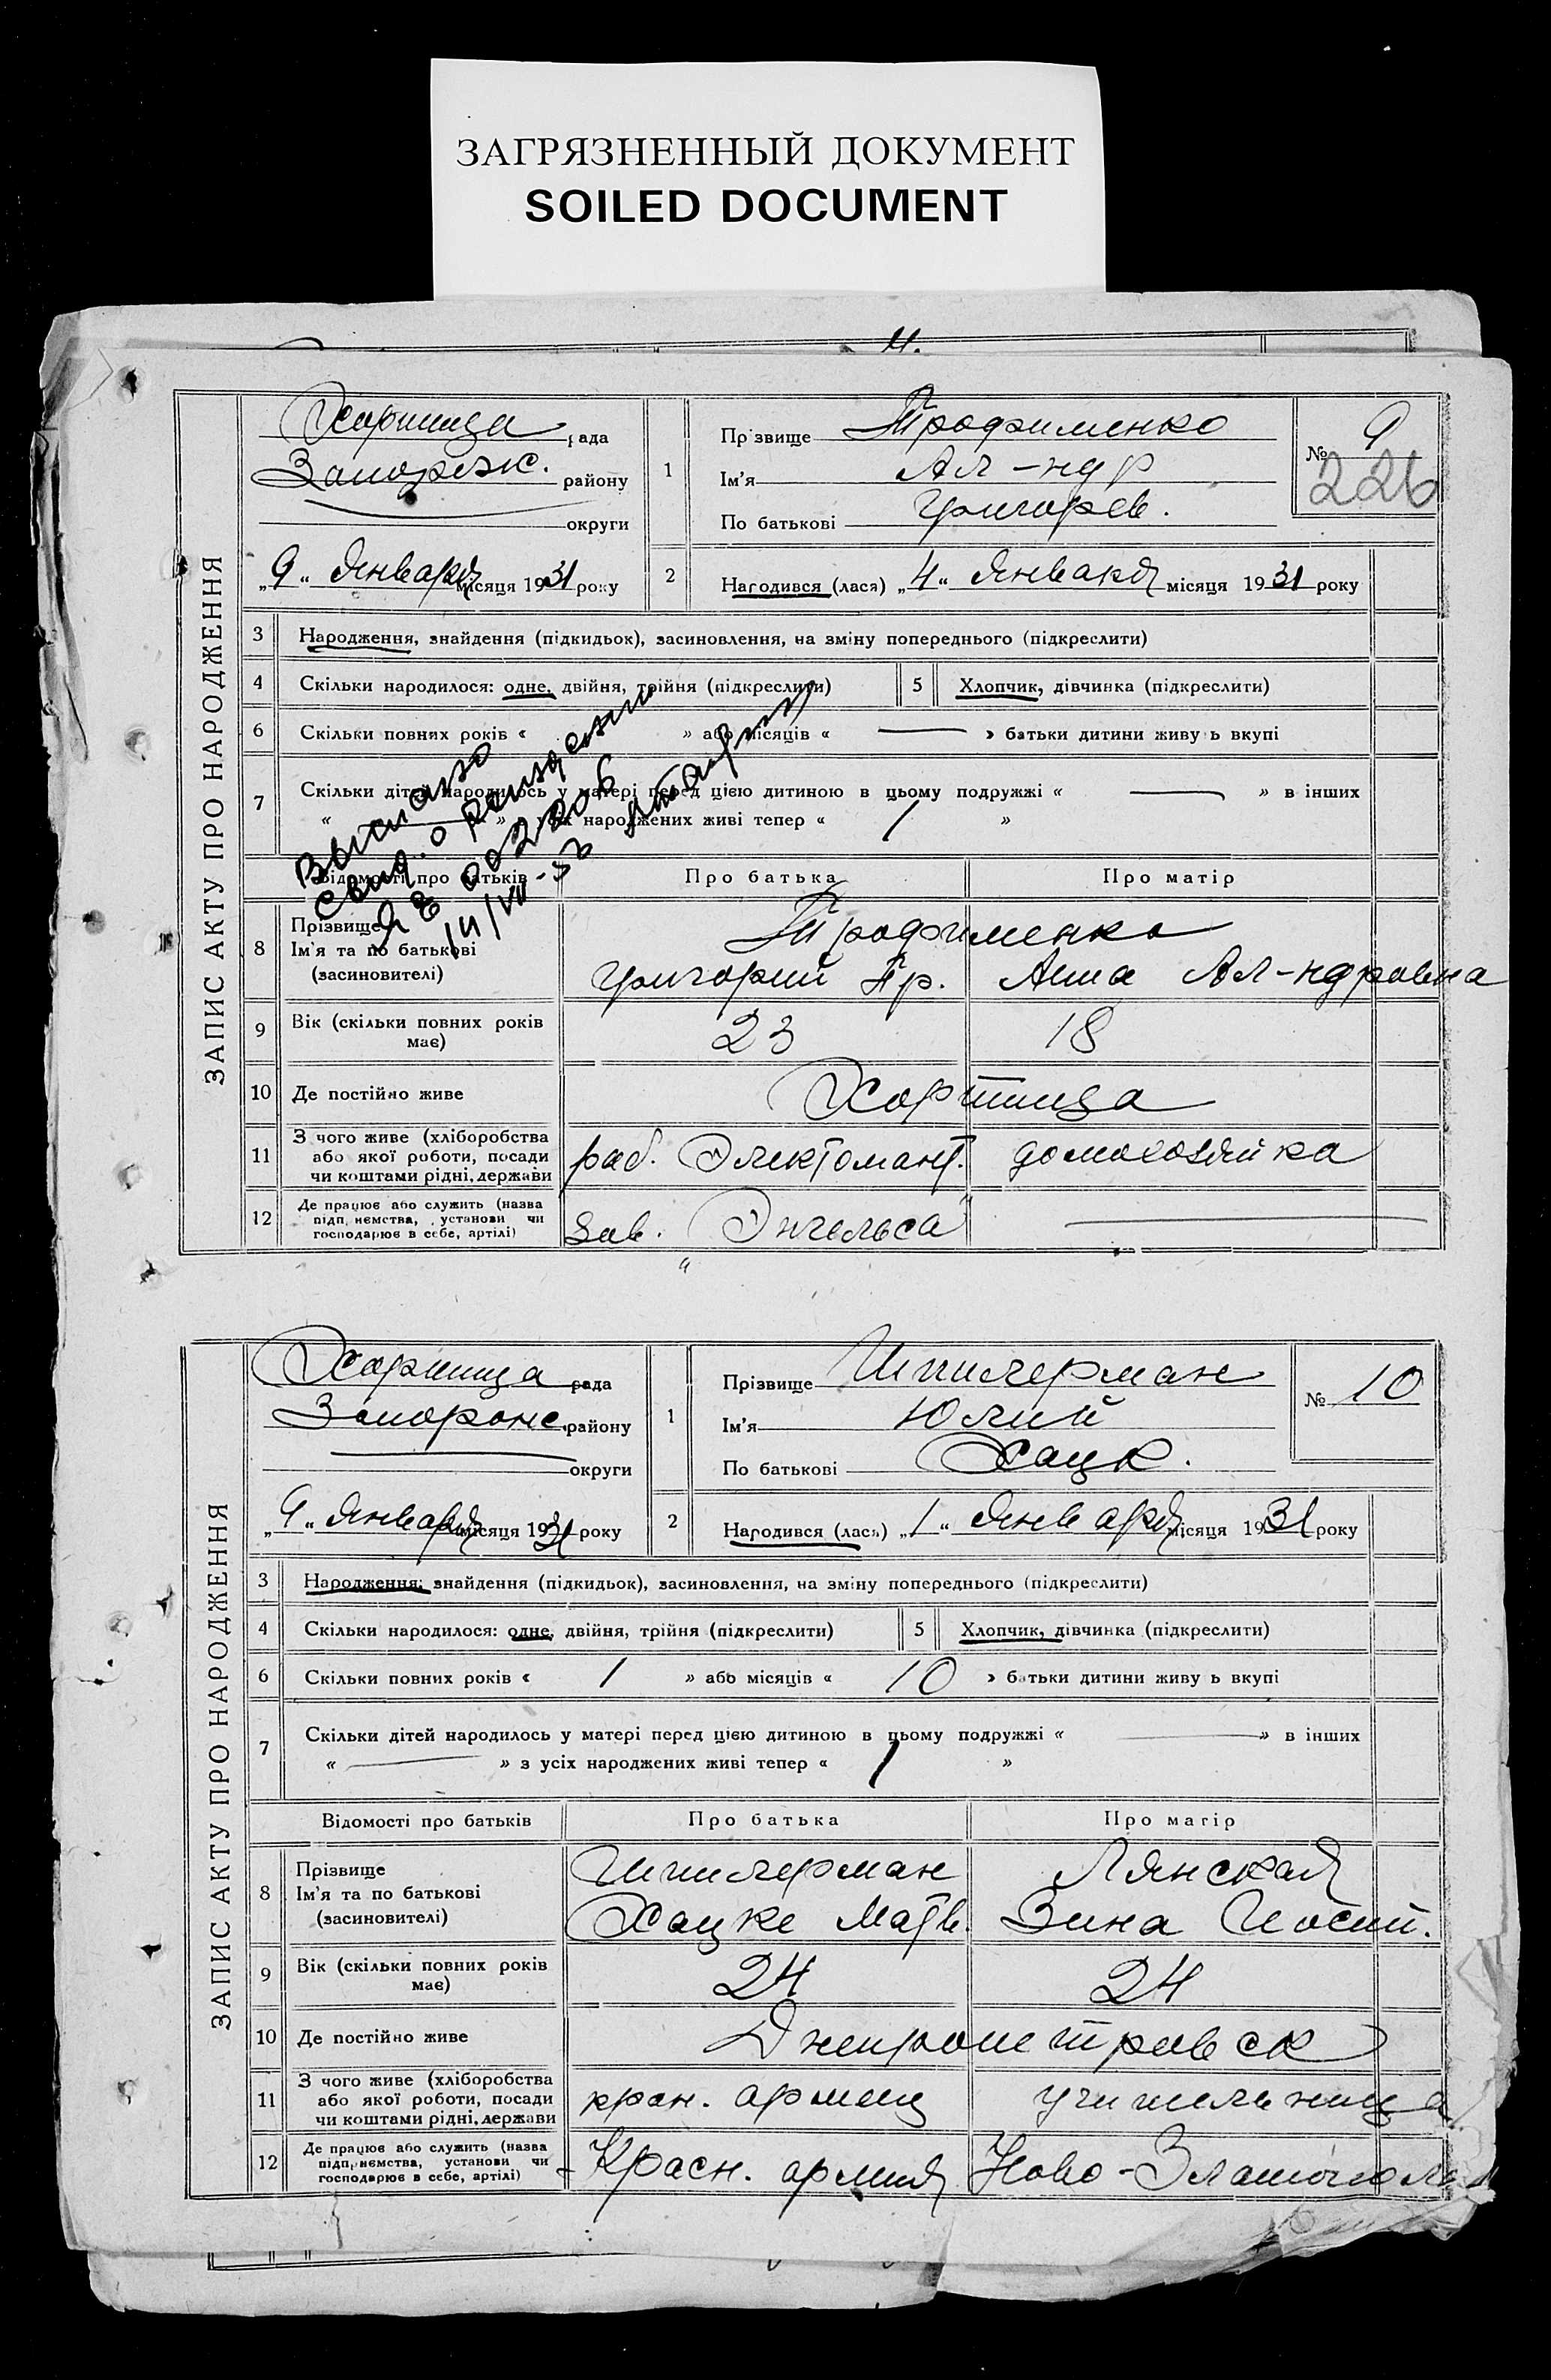 ЗАГРЯЗНЕННЫЙ ДОКУМЕНТ
SOILED DOCUMENT
ЗАПИС АКТУ ПРО НАРОДЖЕННЯ
Хортица рада
Запорізк. району
округи
„9“ Января місяця 1931 року
1
Прізвище Трофименко
Ім'я Ал-ндр
По батькові Григорев.
№ 9
226
2 Народився (лася) „4“ Января місяця 1931 року
3 Народження, знайдення (підкидьок), засиновлення, на зміну попереднього (підкреслити)
4 Скільки народилося: одне, двійня, трійня (підкреслити) 5 Хлопчик, дівчинка (підкреслити)
6 Скільки повних років « » або місяців « — » батьки дитини живуть вкупі
7 Скільки дітей народилось у матері перед цією дитиною в цьому подружжі « — » в інших
« » з усіх народжених живі тепер « 1 »
Выписано
свид. о рождении
002206
Відомості про батьків Про батька Про матір
8 Прізвище
Ім'я та по батькові
(засновителі)
Трофименко
Григорий Пр. Анна Ал-ндровна
9 Вік (скільки повних років має) 23 18
10 Де постійно живе Хортица
11 З чого живе (хліборобства
або якої роботи, посади
чи коштами рідні, держави
раб. Электомонт. домохозяйка
12 Де працює або служить (назва
підприємства, установи чи
господарює в себе, артілі)
Зав. Энгельса —
ЗАПИС АКТУ ПРО НАРОДЖЕННЯ
Хортица рада
Запорож. району
округи
„9“ Января місяця 1931 року
1
Прізвище Шпилерман
Ім'я Юлий
По батькові Хацк.
№ 10
2 Народився (лась) „1“ Января місяця 1931 року
3 Народження; знайдення (підкидьок), засиновлення, на зміну попереднього (підкреслити)
4 Скільки народилося: одне, двійня, трійня (підкреслити) 5 Хлопчик, дівчинка (підкреслити)
6 Скільки повних років « 1 » або місяців « 10 » батьки дитини живуть вкупі
7 Скільки дітей народилось у матері перед цією дитиною в цьому подружжі « — » в інших
« — » з усіх народжених живі тепер « 1 »
Відомості про батьків Про батька Про матір
8 Прізвище
Ім'я та по батькові
(засиновителі)
Шпилерман Лянская
Хацке Матв. Зина Иосип.
9 Вік (скільки повних років має) 24 24
10 Де постійно живе Днепропетровск
11 З чого живе (хліборобства
або якої роботи, посади
чи коштами рідні, держави
кран. армеец учительница
12 Де працює або служить (назва
підприємства, установи чи
господарює в себе, артілі)
Красн. армия Ново-Златополь